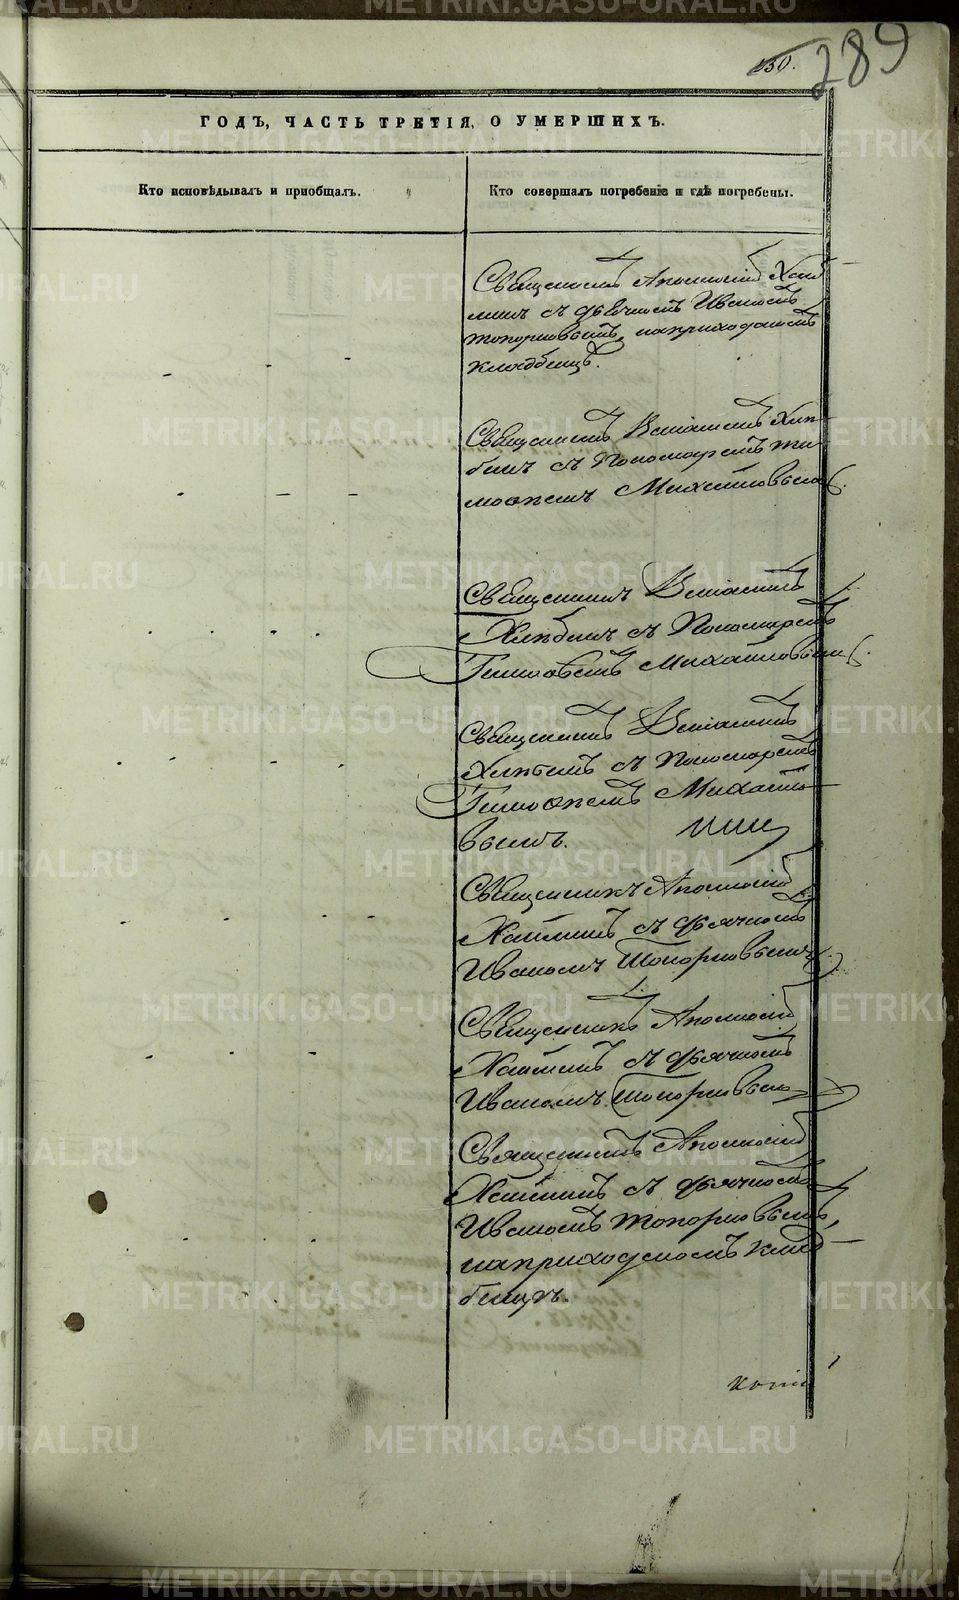 150.
289
ГОДЪ, ЧАСТЬ ТРЕТІЯ, О УМЕРШИХЪ.
Кто исповѣдывалъ и пріобщалъ.
Кто совершалъ погребеніе и гдѣ погребены.
Священникъ Аполлоній Хай
минъ съ дьячкомъ Иваномъ
Топорковымъ, на приходскомъ
кладбищѣ.
Священникъ Веніаминъ Хлѣ
бинъ съ Пономаремъ Ти
моѳеемъ Михайловымъ.
Священникъ Веніаминъ
Хлѣбинъ съ Пономаремъ
Тимоѳеемъ Михайловымъ.
Священникъ Веніаминъ
Хлѣбинъ съ Пономаремъ
Тимоѳеемъ Михайло
вымъ.
Священникъ Аполлоній
Хайминъ съ дьячкомъ
Иваномъ Топорковымъ
Священникъ Аполлоній
Хайминъ съ дьячкомъ
Иваномъ Топорковымъ
Священникъ Аполлоній
Хайминъ съ дьячкомъ
Иваномъ Топорковымъ,
на приходскомъ клад
бищѣ.
METRIKI.GASO-URAL.RU